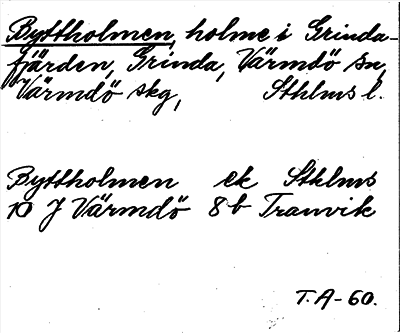 Byttholmen, holme i Grinda-
fjärden, Grinda, Värmdö sn,
Värmdö skg, Sthlms l.
Byttholmen ek Sthlms
10 J Värmdö 8 b Tranvik
T.A-60.